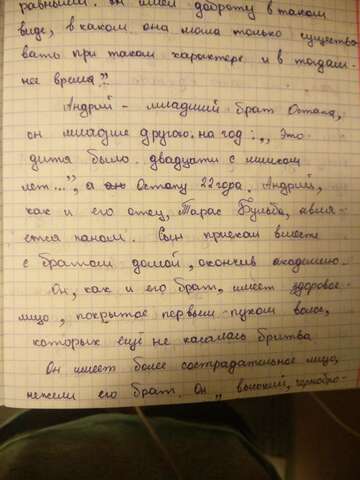 равными. он имел доброту в таком
виде, в каком она могла только существо
вать при таком характере и в тогдаш-
нее время."
Андрий - младший брат Остапа,
он младше другого на год: „ Это
дитя было двадцати с лишком
лет...", а он Остапу 22 года. Андрий,
как и его отец, Тарас Бульба, явля-
ется паном. Сын приехал вместе
с братом домой, окончив академию.
Он, как и его брат, имеет здоровое
лицо, покрытое первым пухом волос,
которых ещё не касалась бритва
Он имеет более сострадательное лицо,
нежели его брат. Он „ высокий, чернобро-